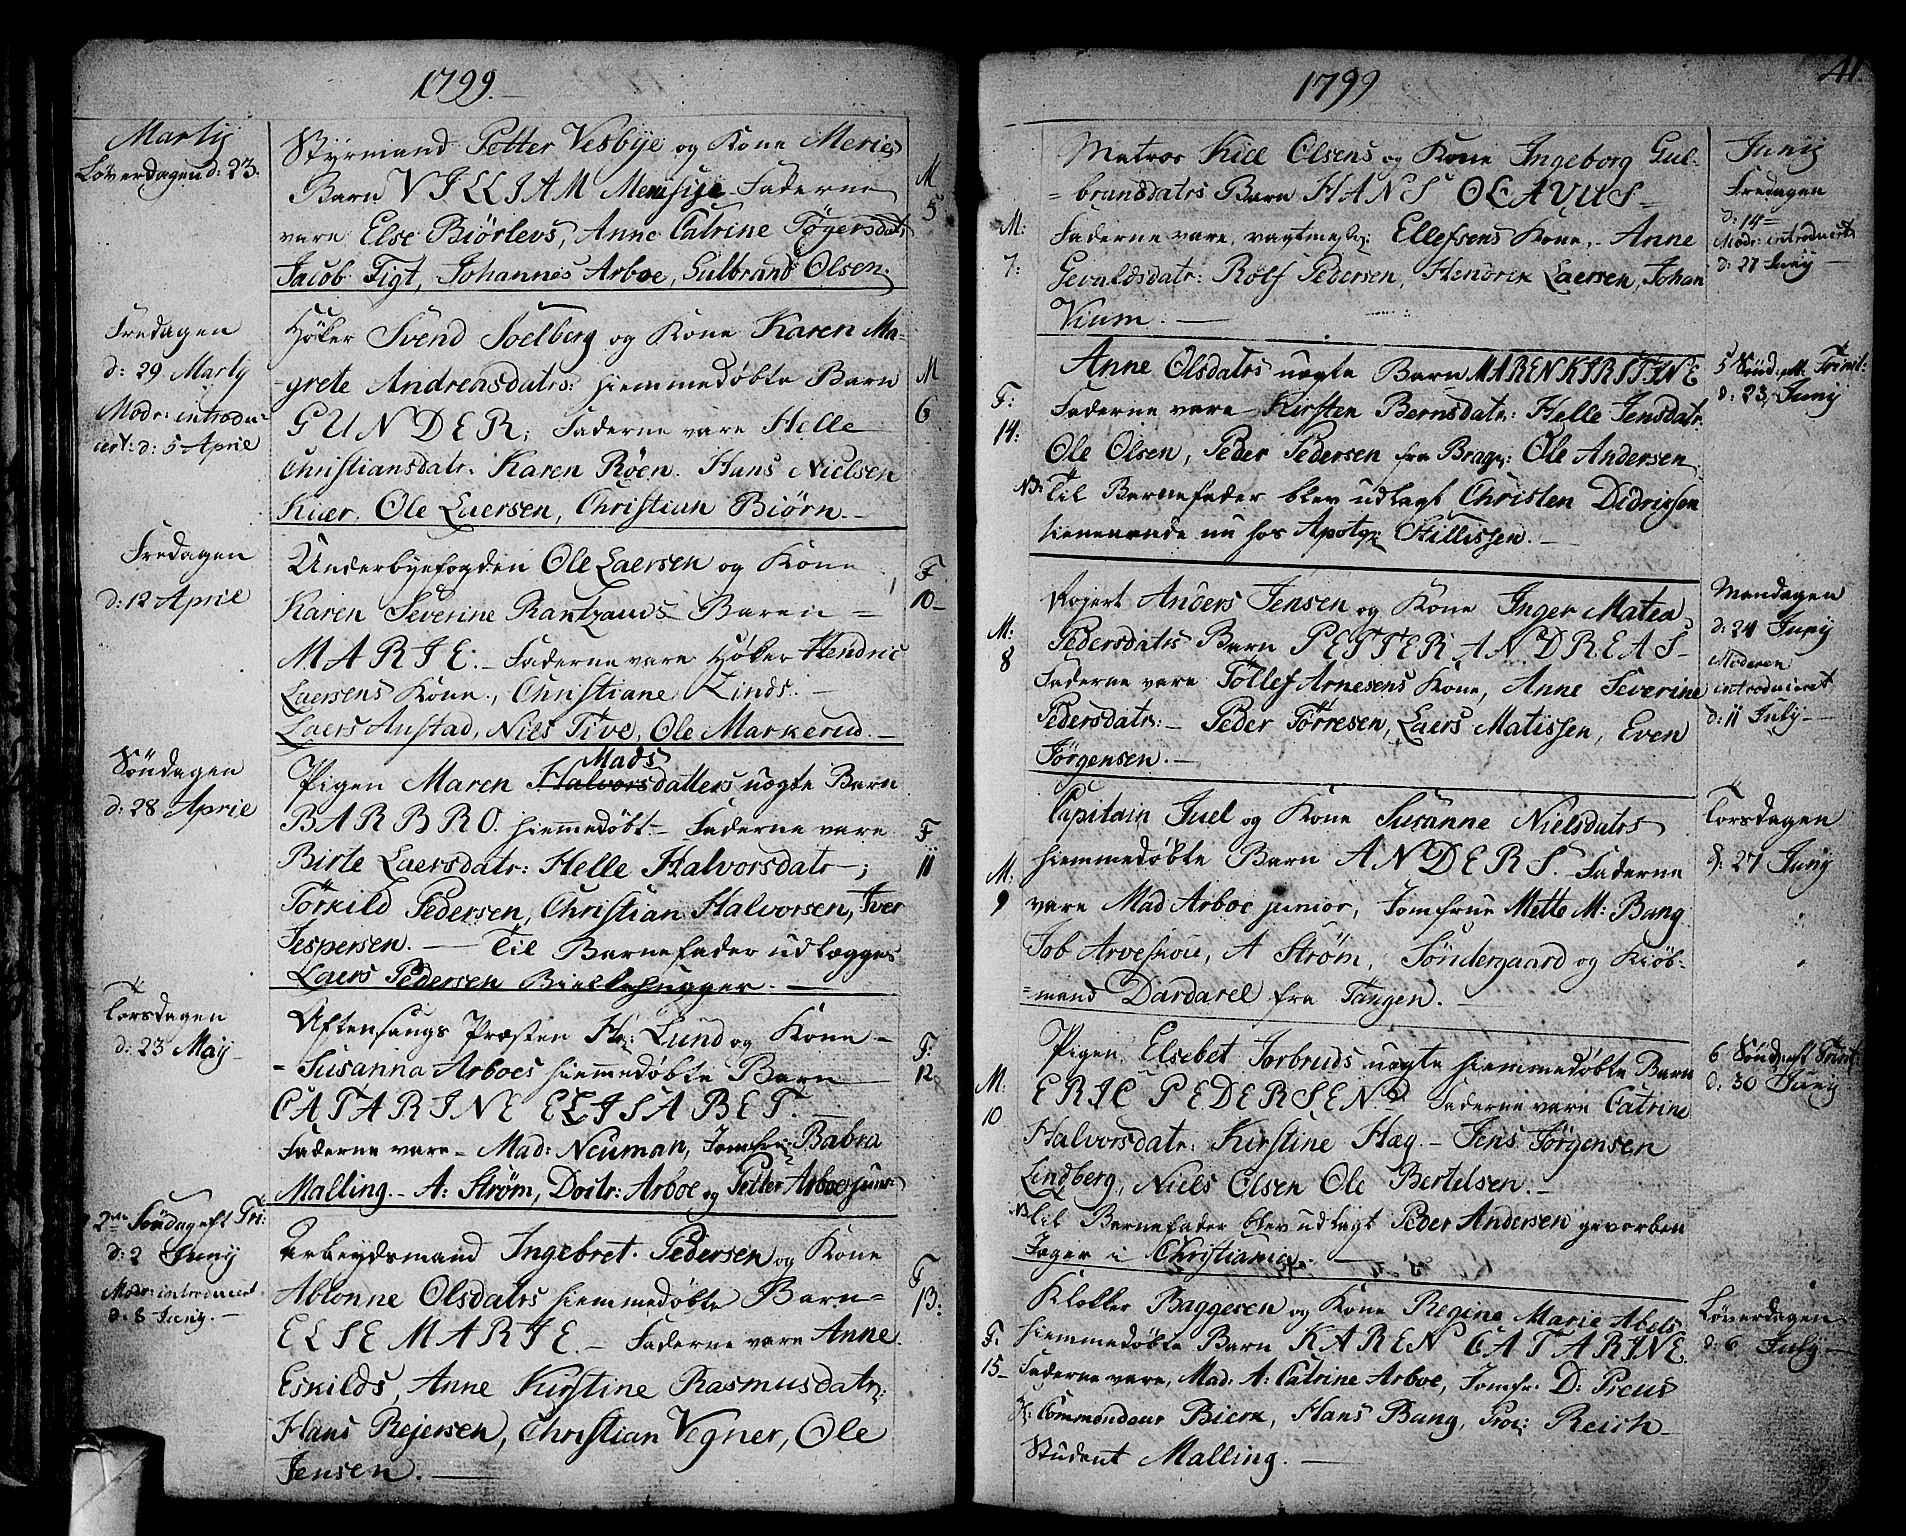 1799.
Martij
Löverdagen d: 23.
Styrmand Petter Vesbye og Kone Meries
Barn VILLIAM Faderne
vare Else Biörlevs, Anne Catrine Tögersdatr
Jacob Figt, Johannes Arboe, Gulbrand Olsen.
M
5
Fredagen
d: 29 Martij
Modr: introdu-
cert: d: 5 April
Höker Svend Soelberg og Kone Karen Ma-
-grete Andreasdatrs: hiemmedöbte Barn
GUNDER; Faderne vare Helle
Christiansdatr. Karen Röen. Hans Nielsen
Kiær, Ole Laersen, Christian Biörn.-
M
6
Fredagen
d: 12 April
Underbyefogden Ole Laersen og Kone
Karen Severine Rantzaus Baren =
MARIE.- Faderne vare Höker Hendric
Laersens Kone., Christiane Linds.-
Laers Anstad, Niels Tive, Ole Markerud.-
F
10-
Söndagen
d: 28 April
Mads
Pigen Maren Halvorsdatters uægte Barn
BARBRO. hiemmedöbt - Faderne vare
Birte Laersdatr: Helle Halvorsdatr-;
Törkild Pedersen, Christian Halvorsen, Iver
Jespersen. - Til Barnefader udlægges
Laers Pedersen Bielkehugger.-
F
11
Torsdagen
d: 23 Maij
Aftensangs Præsten Hr: Lund og Kone -
- Susanna Arboes hiemmedöbte Barn
CATARINE ELISABET.-
Faderne vare - Mad: Neuman, Jomfru: Babra
Malling.- A: Ström, Doctr: Arboe og Petter Arboe junr:
F:
12
2den Söndag eft Tri:
d: 2 Junij
Modr: introducert
d: 8 Junij.-
Arbeydsmand Ingebret Pedersen og Kone
Ablonne Olsdatrs hiemmedöbte Barn=
ELSE MARIE.- Faderne vare Anne
Eskilds, Anne Kirstine Rasmusdatr:
Hans Rejersen, Christian Vegner, Ole
Jensen.-
F
13:
1799
41.
Matros Kiel Olsens og Kone Ingeborg Gul-
=bransdatrs Barn HANS OLAVUS-
M: Faderne vare, Ellefsens Kone,- Anne
7: Gevaldsdatr: Rolf Pedersen, Hendrik Laersen, Johan
Vium.-
Junij
Fredagen
d: 14
Modr: introducert
d: 27 Junij-
Anne Olsdatrs uægte Barn MAREN KIRSTINE
F: Faderne vare - Kirsten Bernsdatr: Helle Jensdatr.
14: Ole Olsen, Peder Pedersen fra Brag: Ole Andersen
NB: Til Barnefader blev udlagt Christen Didrissen
tienenende nu hos Apoteq: Stillissen.-
5 Sönd: eft Trinit:
d: 23 Junij
Rojert Anders Jensen og Kone Inger Matea
M: Pedersdatrs Barn PETTER ANDREAS-
8 Faderne vare Töllef Arnesens Kone, Anne Severine
Pedersdatr:- Peder Törresen, Laers Matissen, Even
Jörgensen.-
Mandagen
d: 24 Junij
Moderen
introduceret
d: 11 Julij-
Capitain Juel og Kone Susanne Nielsdatrs
M: hiemmedöbte Barn ANDERS. Faderne
9 vare Mad Arboe junior, Jomfrue Mette M: Bang
Job Arveskou, A Ström, Söndergaard og Kiöb-
=mand Dardarel fra Tangen.-
Torsdagen
d: 27 Junij
Pigen Elsebet Jorbruds uægte hiemmedöbte Barn
M. ERIC PEDERSEN. Faderne vare Catrine
10 Halvorsdatr: Kirstine Hag.- Jens Jörgensen
Lindberg, Niels Olsen Ole Bertelsen.-
NB Til Barnefader blev udlagt Peder Andersen gevorben
Jæger i Christiania.-
6 Sönd: eft Trinit
d: 30 Junij
Klokker Baggesen og Kone Regine Marie Abels
F: hiemmedöbte Barn KAREN CATARINE
15- Faderne vare, Mad. A: Catrine Arboe, Jomfr: D: Preus
Hr: Commandeur Bierk, Hans Bang, Proc: Reich-
Student Malling.-
Löverdagen
d: 6 Julij-